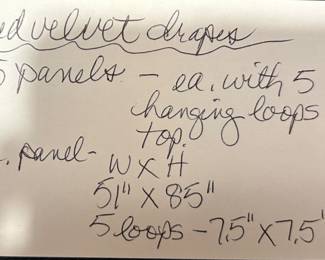 ed velvet drapes
5 panels - ea. with 5
hanging loops
top.
. panel -
W X H
51" X 85"
5 loops - 7.5" X 7.5'